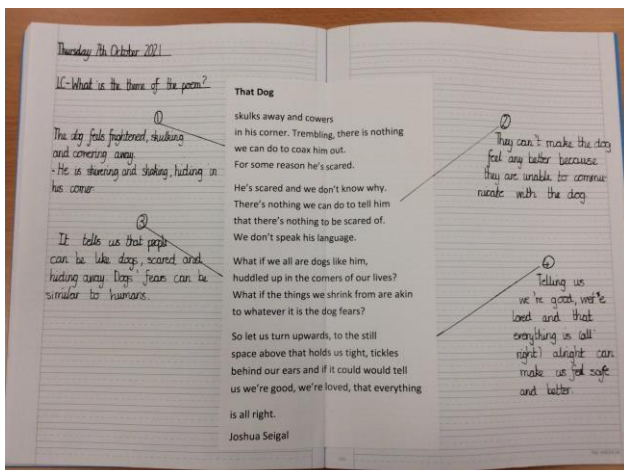 Thursday 7th October 2021
LC-What is the theme of the poem?
①
The dog feels frightened, skulking
and cowering away.
- He is shivering and shaking, hiding in
his corner.
③
It tells us that people
can be like dogs, scared and
hiding away. Dogs' fears can be
similar to humans.
That Dog
skulks away and cowers
in his corner. Trembling, there is nothing
we can do to coax him out.
For some reason he's scared.
He's scared and we don't know why.
There's nothing we can do to tell him
that there's nothing to be scared of.
We don't speak his language.
What if we all are dogs like him,
huddled up in the corners of our lives?
What if the things we shrink from are akin
to whatever it is the dog fears?
So let us turn upwards, to the still
space above that holds us tight, tickles
behind our ears and if it could would tell
us we're good, we're loved, that everything
is all right.
Joshua Seigal
②
They can't make the dog
feel any better because
they are unable to commu
nicate with the dog.
④
Telling us
we're good, we're
loved and that
everything is (all
right) alright can
make us feel safe
and better.